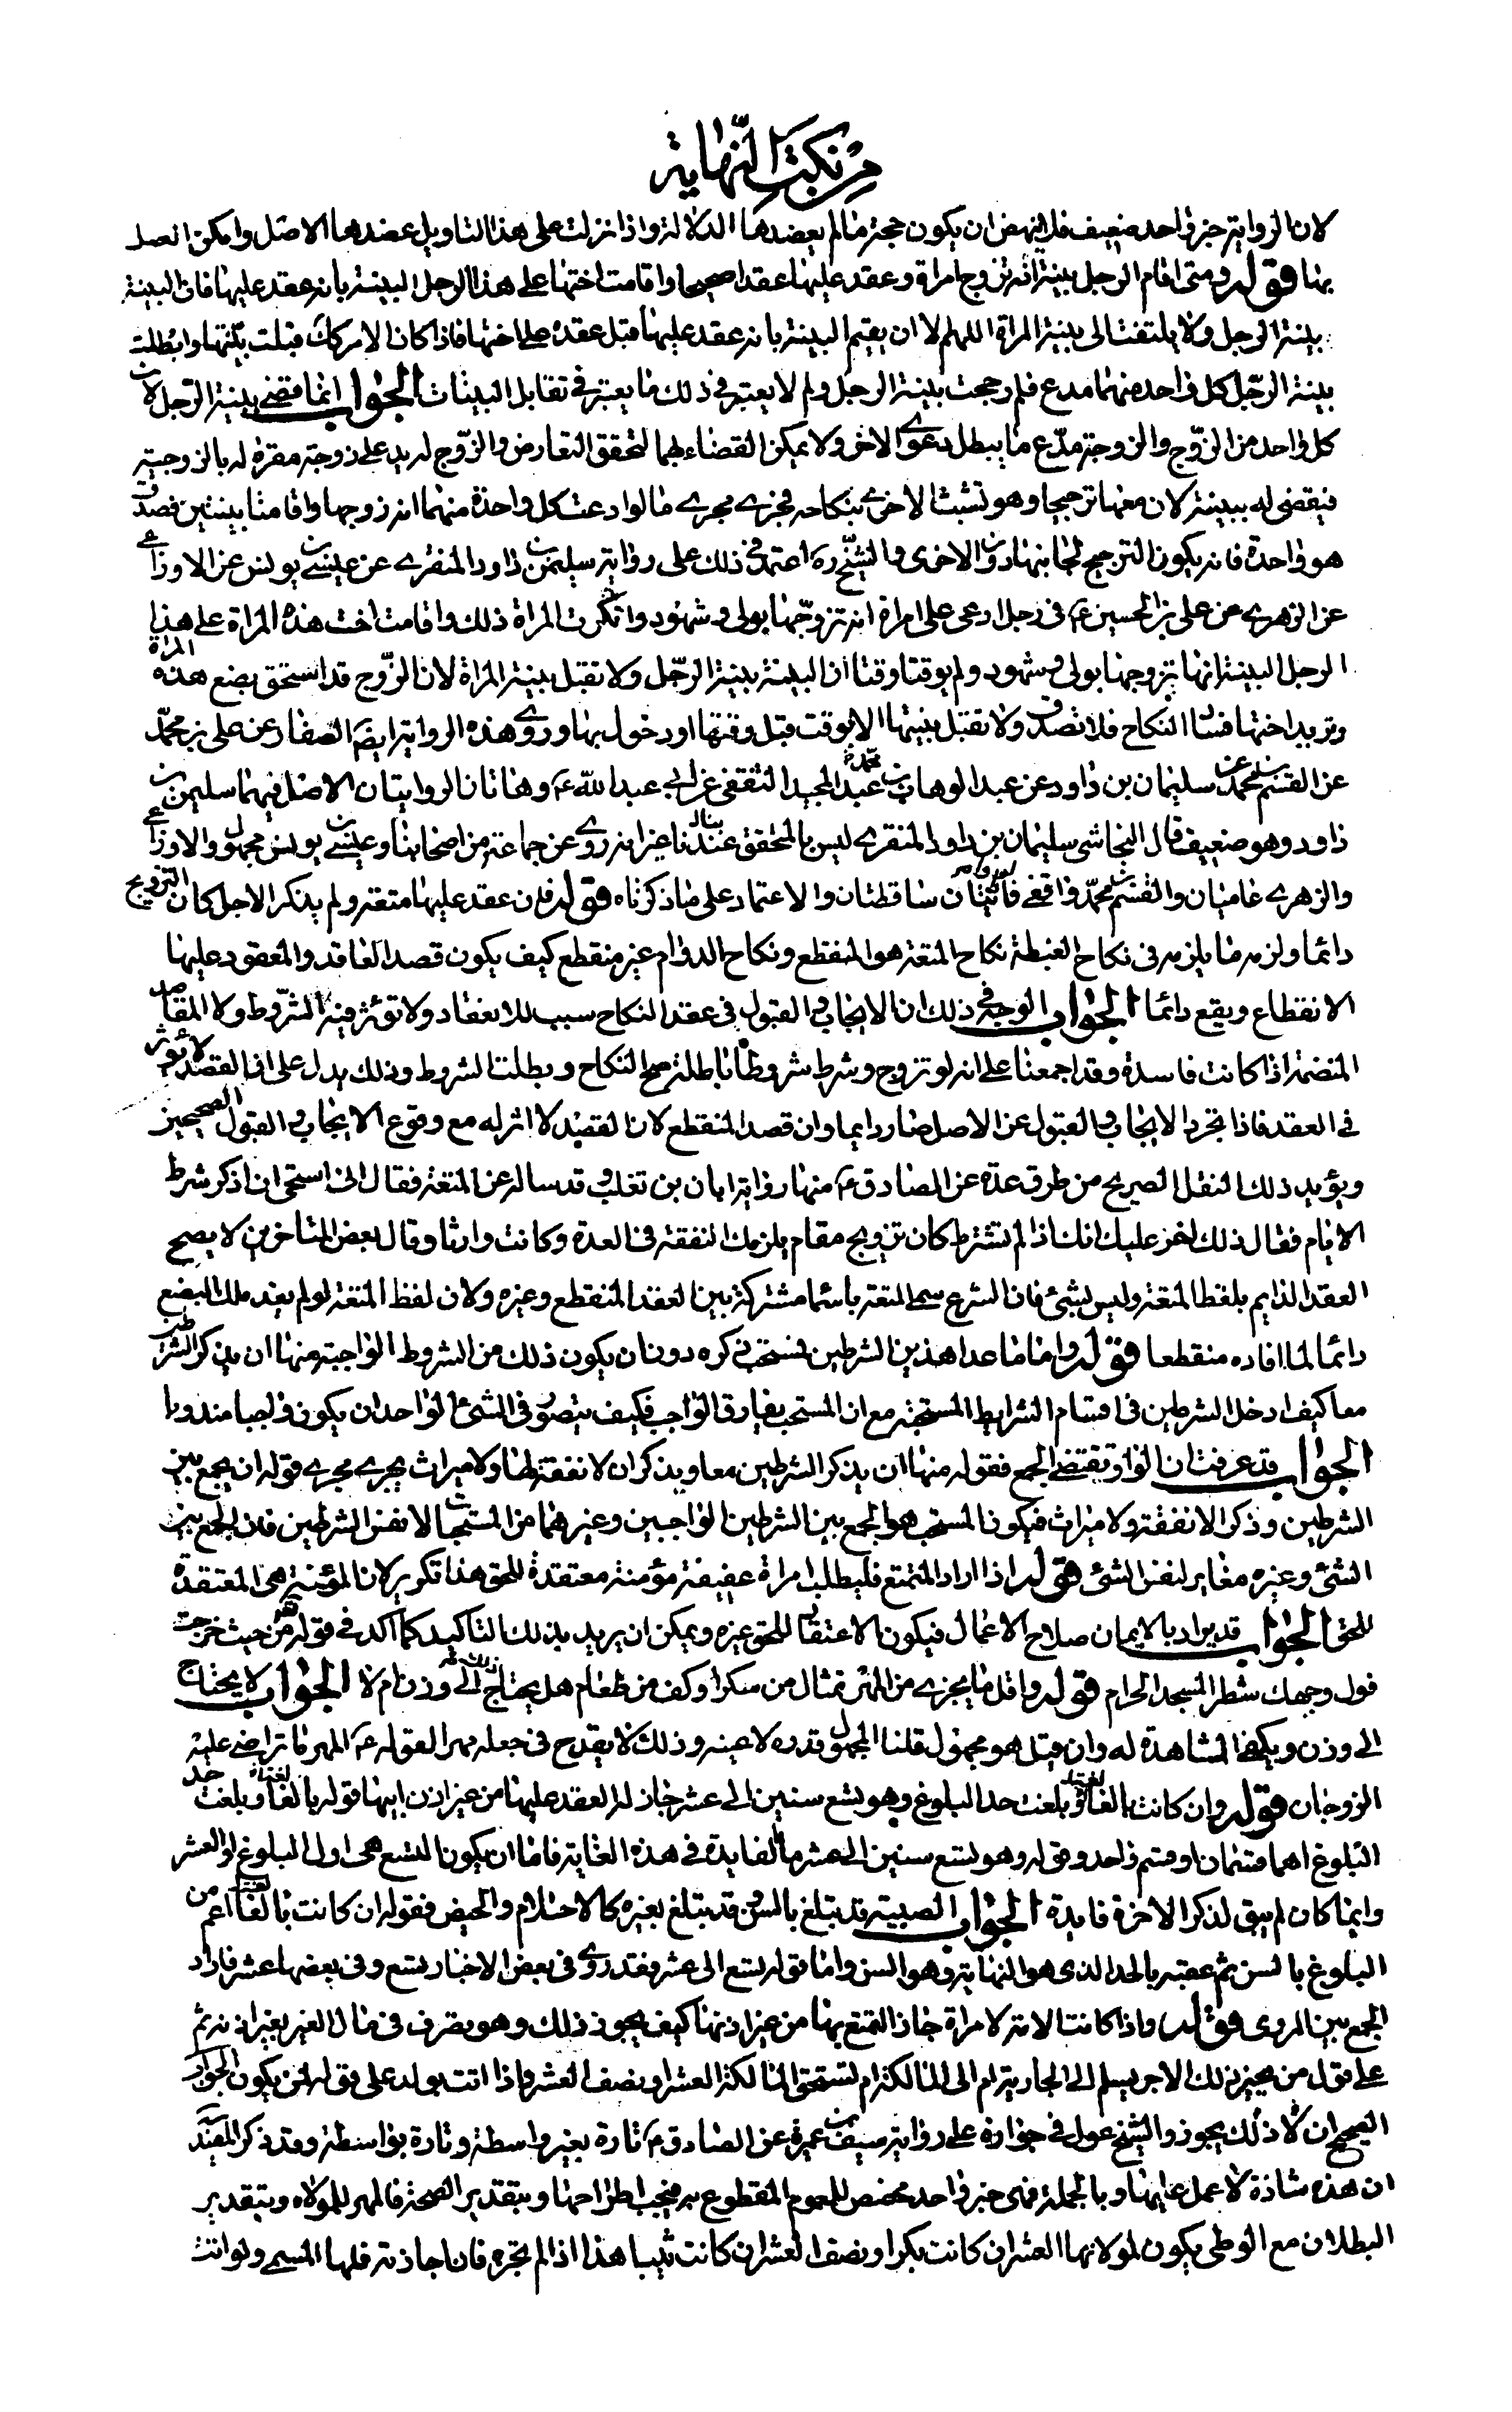 من نكت النهاية
لان الرواية خبر واحد ضعيف فلا ينهض ان يكون حجة ما لم يعضدها الدلالة واذا نزلت على هذا التاويل عضدها الاصل وامكن العمل
بها قوله ومتى اقام الرجل بينة انه تزوج امراة وعقد عليها عقدا صحيحا واقامت اختها على هذا الرجل البينة بانه عقد عليها فان البينة
بينة الرجل ولا يلتفت الى بينة المراة اللهم الا ان يقيم البينة بانه عقد عليها قبل عقده على اختها فاذا كان الامر كك قبلت بينتها وابطلت
بينة الرجل كل واحد منهما مدع فلم رجحت بينة الرجل ولم لا يعتبر في ذلك ما يعتبر في تقابل البينات الجواب انما قضى ببينة الرجل لان
كل واحد من الزوج والزوجة مدع ما يبطل دعوى الاخر ولا يمكن القضاء لهما لتحقق التعارض والزوج له يد على زوجة مقرة له بالزوجية
فيقضى له ببينته لان معها ترجيحا وهو تشبث الاخرى بنكاحه فجرى مجرى ما لو ادعت كل واحدة منهما انه زوجها واقامتا بينتين فصدق
هو واحدة فانه يكون الترجيح لجانبها دون الاخرى والشيخ ره اعتمد في ذلك على رواية سليمن بن داود المنقرى عن عيسى بن يونس عن الاوزاعى
عن الزهرى عن على بن الحسين ع في رجل ادعى على امراة انه تزوجها بولى وشهود وانكرت المراة ذلك واقامت اخت هذه المراة على هذا
الرجل البينة انها تزوجها بولى وشهود ولم يوقتا وقتا ان البينة بينة الرجل ولا تقبل بينة المراة لان الزوج قد استحق بضع هذه المراة
وتريد اختها فساد النكاح فلا تصدق ولا تقبل بينتها الا بوقت قبل وقتها او دخول بها وروى هذه الرواية ايضا الصفار عن على بن محمد
عن القسم بن محمد عن سليمان بن داود عن عبد الوهاب بن عبد المجيد الثقفى عن ابى عبد الله ع وهاتان الروايتان الاصل فيهما سليمن بن
داود وهو ضعيف قال النجاشى سليمان بن داود المنقرى ليس بالمتحقق بنا غير انه روى عن جماعة من اصحابنا وعيسى بن يونس مجهول والاوزاعى
والزهرى عاميان والقسم بن محمد واقفى فالروايتان ساقطتان والاعتماد على ما ذكرناه قوله فان عقد عليها متعة ولم يذكر الاجل كان التزويج
دائما ولزمه ما يلزمه في نكاح الغبطة نكاح المتعة هو المنقطع ونكاح الدوام غير منقطع كيف يكون قصد العاقد والمعقود عليها
الانقطاع ويقع دائما الجواب الوجه في ذلك ان الايجاب والقبول في عقد النكاح سبب للانعقاد ولا تؤثر فيه الشروط ولا المقاصد
المنضمة اذا كانت فاسدة وقد اجمعنا على انه لو تزوج وشرط شروطا باطلة صح النكاح وبطلت الشروط وذلك يدل على ان القصد لا يؤثر
في العقد فاذا تجرد الايجاب والقبول عن الاصل صار دايما وان قصد المنقطع لان القصد لا اثر له مع وقوع الايجاب والقبول الصحيحين
ويؤيد ذلك النقل الصريح من طرق عدة عن الصادق ع منها رواية ابان بن تغلب وقد ساله عن المتعة فقال انى استحى ان اذكر شرط
الايام فقال ذلك اضر عليك انك اذا لم تشترط كان تزويج مقام يلزمك النفقة في العدة وكانت وارثا وقال بعض المتاخرين لا يصح
العقد الدايم بلفظ المتعة وليس بشئ فان الشرع سمى المتعة باسما مشتركة بين العقد المنقطع وغيره ولان لفظ المتعة لو لم يفد ملك البضع
دائما لما افاده منقطعا قوله واما ما عدا هذين الشرطين فمستحب ذكره دون ان يكون ذلك من الشروط الواجبة منها ان يذكر الشرطين
معا كيف ادخل الشرطين في اقسام الشرايط المستحبة مع ان المستحب يفارق الواجب فكيف يتصور في الشئ الواحد ان يكون واجبا مندوبا
الجواب قد عرفت ان الواو تقتضى الجمع فقوله منها ان يذكر الشرطين معا ويذكر ان لا نفقة لها ولا ميراث يجرى مجرى قوله ان يجمع بين
الشرطين وذكر الا نفقة ولا ميراث فيكون المستحب هو الجمع بين الشرطين الواجبين وغيرهما من المستحبات لا نفس الشرطين فان الجمع بين
الشئ وغيره مغاير لنفس الشئ قوله اذا اراد المتمتع فليطلب امراة عفيفة مؤمنة معتقدة للحق هذا تكرير لان المؤمنة هى المعتقدة
للحق الجواب قد يراد بالايمان صلاح الاعمال فيكون الاعتقاد للحق غيره ويمكن ان يريد بذلك التاكيد كما اكد في قوله ومن حيث خرجت
فول وجهك شطر المسجد الحرام قوله واقل ما يجزى من المهر تمثال من سكر او كف من طعام هل يحتاج ذلك الى وزن ام لا الجواب لا يحتاج
الى وزن ويكفى المشاهدة له وان قيل هو مجهول قلنا المجهول قدره لا عينه وذلك لا يقدح في جعله مهرا لقوله ع المهر ما تراضى عليه
الزوجان قوله وان كانت بالغا وبلغت حد البلوغ وهو تسع سنين الى عشر جاز له العقد عليها من غير اذن ابيها قوله بالغا وبلغت حد
البلوغ اهما قسمان او قسم واحد وقوله وهو تسع سنين الى عشر ما الفايدة في هذه الغاية فاما ان يكون التسع هى اول البلوغ او العشر
وايما كان لم يبق لذكر الاخرة فايدة الجواب الصبية قد تبلغ بالسن وقد تبلغ بغيره كالاحتلام والحيض فقوله ان كانت بالغا اعم من
البلوغ بالسن ثم عقبه بالحد الذى هو النهاية وهو السن واما قوله تسع الى عشر فقد روى في بعض الاخبار تسع وفى بعضها عشر فاراد
الجمع بين المروى قوله واذا كانت الامة لامراة جاز التمتع بها من غير اذنها كيف يجوز ذلك وهو تصرف في مال الغير بغير اذنه ثم
على قول من يجيز ذلك الاجر يسلم الى الجارية ام الى المالكة ام تستحق المالكة العشر او نصف العشر واذا اتت بولد على قوله لمن يكون الجواب
الصحيح ان ذلك لا يجوز والشيخ عول في جوازه على رواية سيف بن عميرة عن الصادق ع تارة بغير واسطة وتارة بواسطة وقد ذكر المفيد
ان هذه شاذة لا عمل عليها وبالجملة فهى خبر واحد مخصص للعموم المقطوع به فيجب اطراحها وبتقدير الصحة فالمهر للمولاه وبتقدير
البطلان مع الوطى يكون لمولاتها العشر ان كانت بكرا ونصف العشر ان كانت ثيبا هذا اذا لم تجزه فان اجازته فلها المسمى ولو اتت